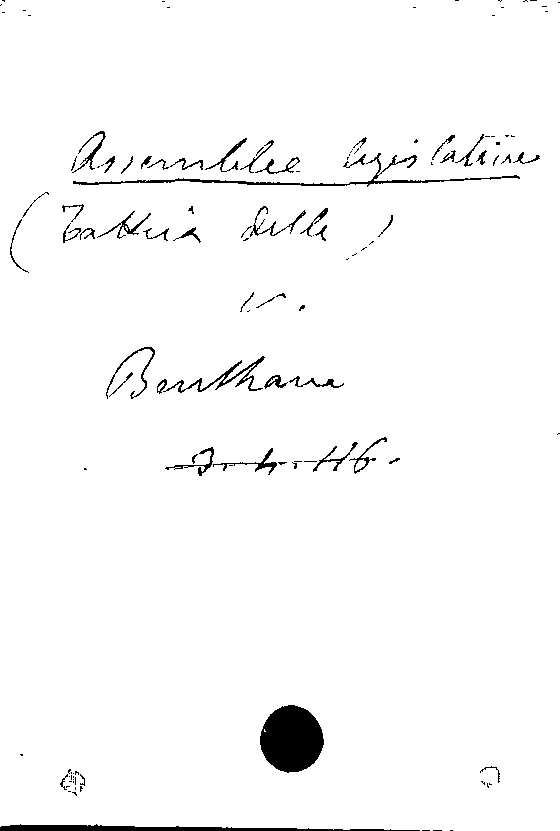 Assemblee legislative
(Tattica delle)
v.
Bentham
3. 4. 46.